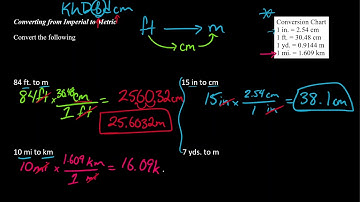 KhDⓑdcm
Converting from Imperial to Metric
Convert the following
ft. → m
→ cm
Conversion Chart
1 in. = 2.54 cm
1 ft. = 30.48 cm
1 yd. = 0.9144 m
1 mi. = 1.609 km
84 ft. to m
84 ft × 30.48 cm / 1 ft = 2560.32 cm
25.6032 m
15 in to cm
15 in × 2.54 cm / 1 in = 38.1 cm
10 mi to km
10 mi × 1.609 km / 1 mi = 16.09 k
7 yds. to m